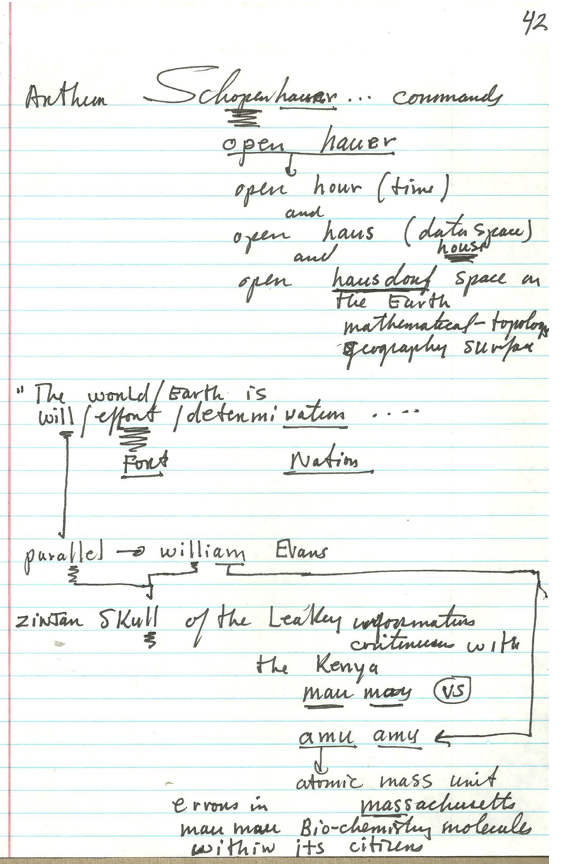 42
Anthem Schopenhauer ... commands
open hauer
open hour (time)
and
open haus (data space)
and house
open hausdorf space on
the Earth
mathematical-topology
geography surface
"The world/Earth is
will/effort/determination ....
Font Nation
parallel → william Evans
zinjan Skull of the Leakey information
continues with
the Kenya
mau mau vs
amu amu
atomic mass unit
errors in massachusetts
mau mau Bio-chemistry molecules
within its citizens